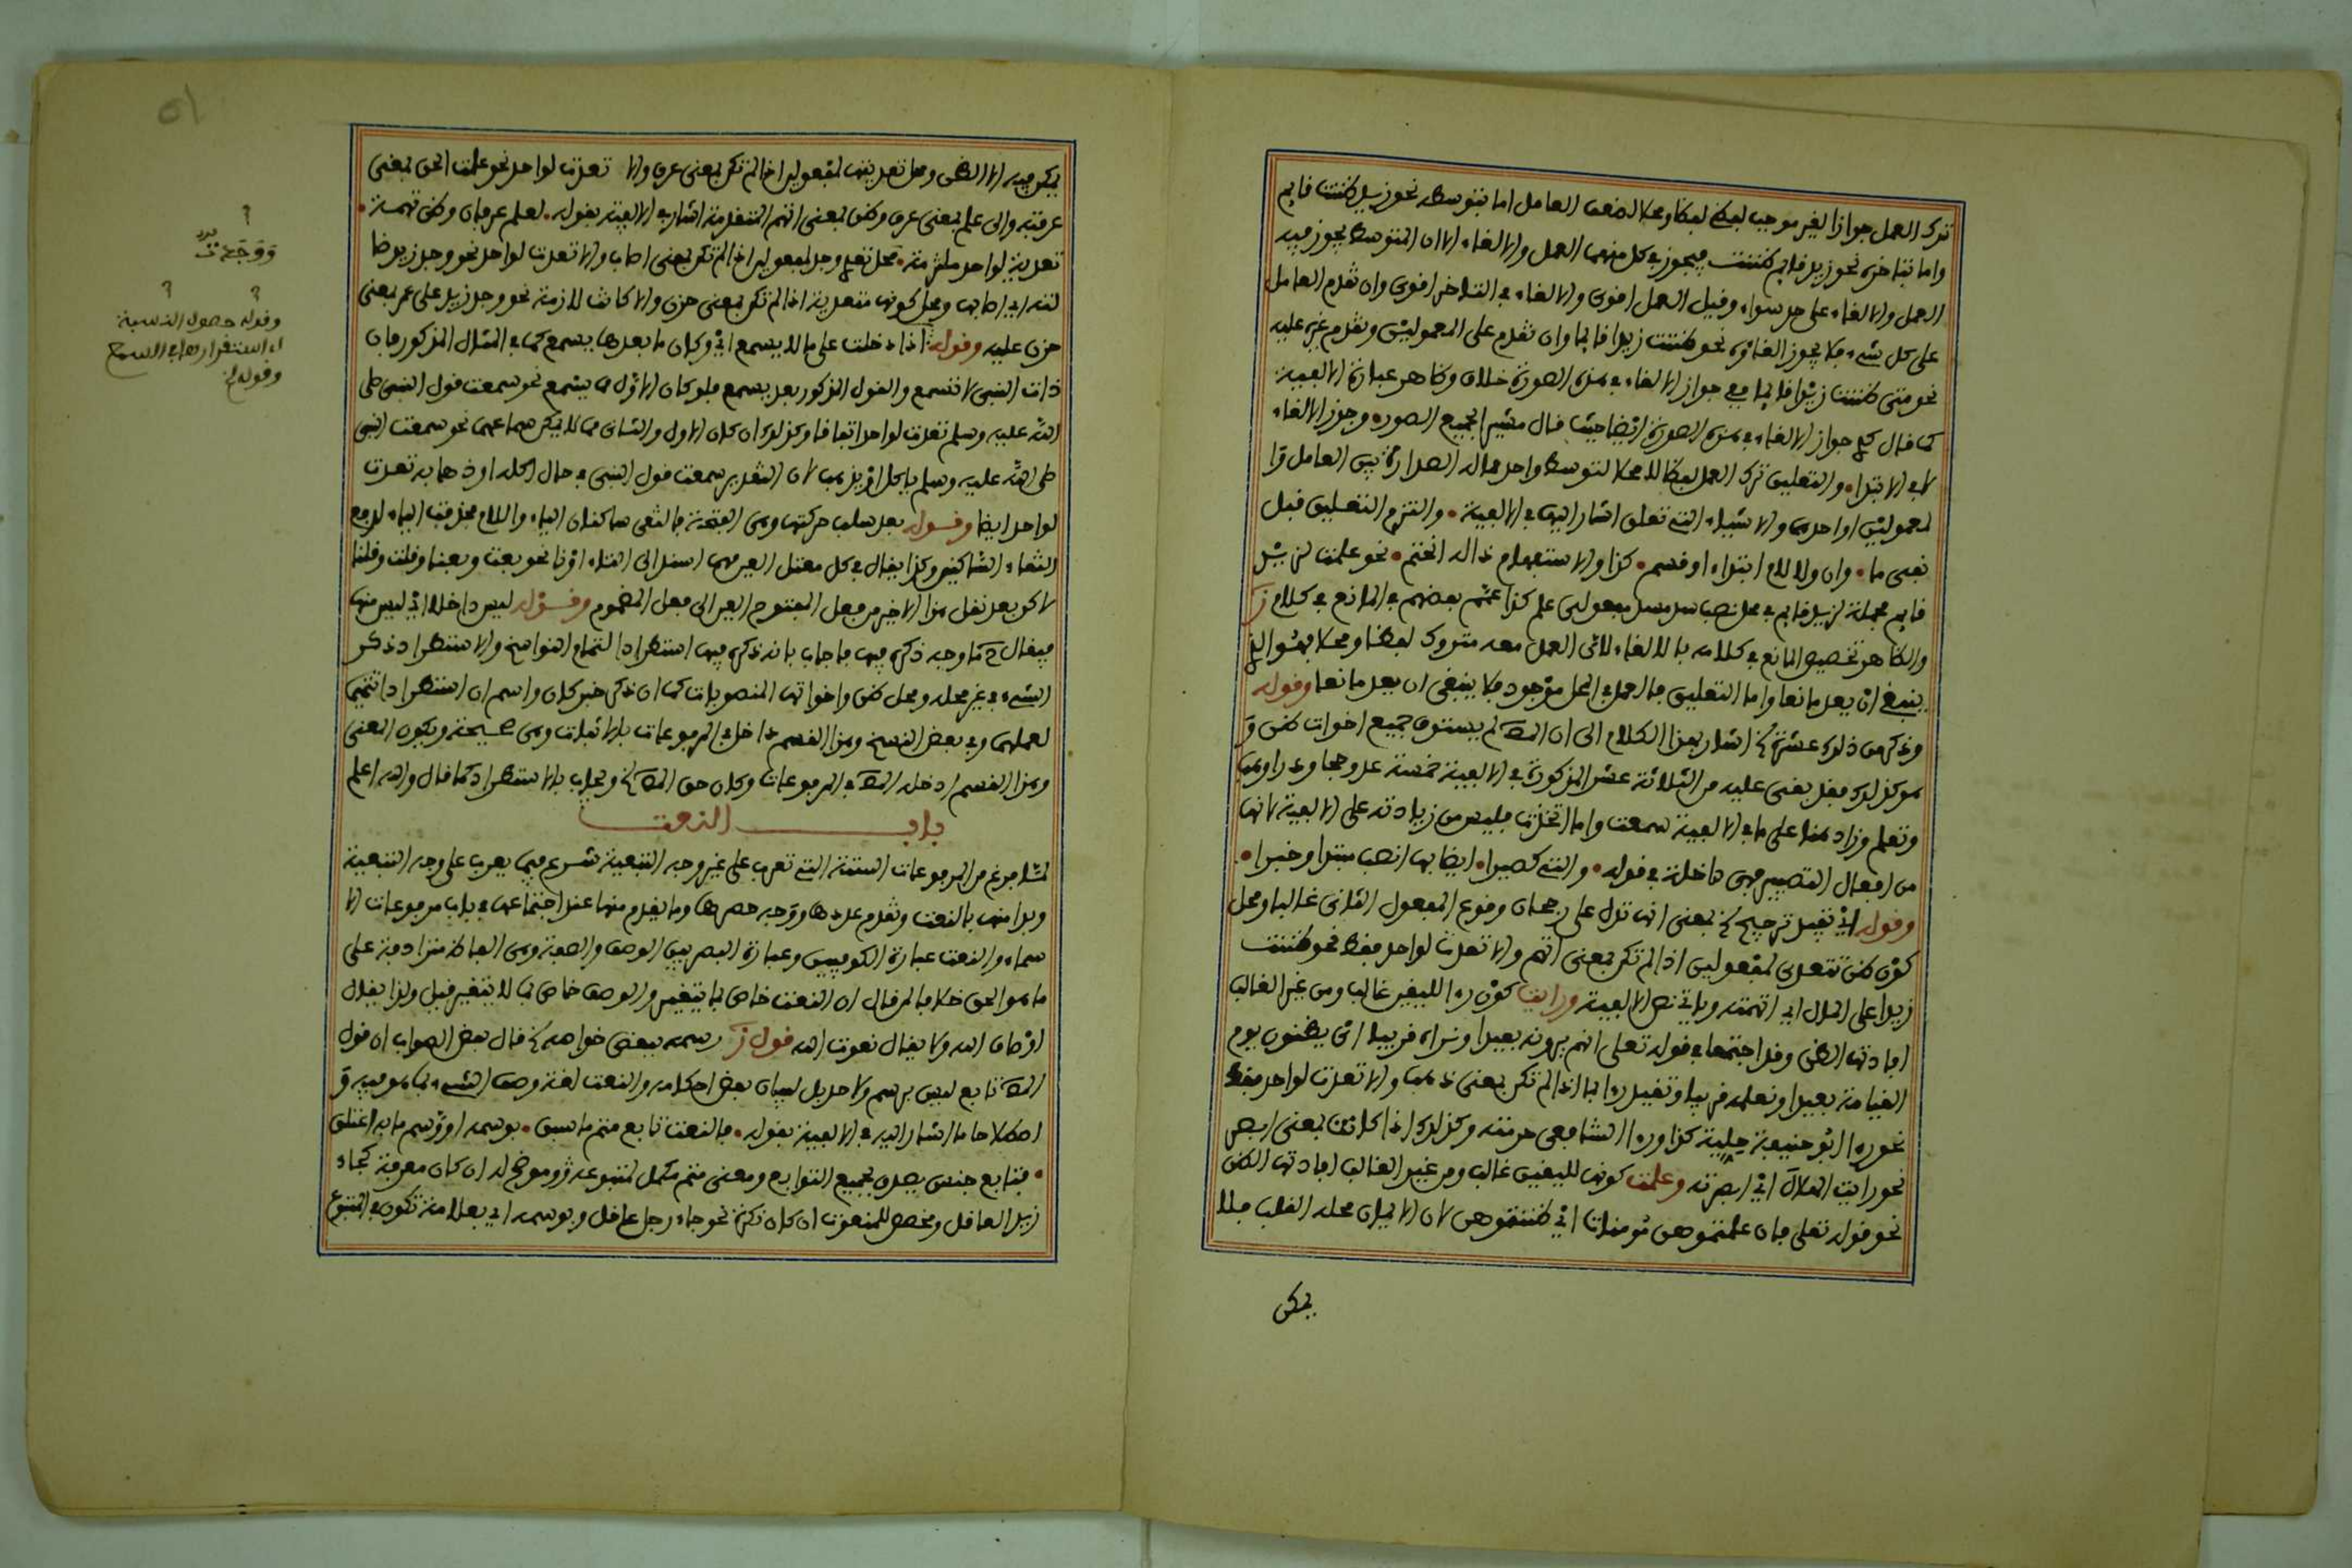 ترك العمل جوازا لغير موجب لفظا ومحلا لضعف العامل اما بتوسطه نحو زيد ظننت قايم
واما بتاخره نحو زيد قايم ظننت فيجوز في كل منهما العمل والالغاء الا ان المتوسط يجوز فيه
العمل والالغاء على حد سواء وقيل العمل اقوى والالغاء في التاخر اقوى وان تقدم العامل
على كل شيء فلا يجوز الغاؤه نحو ظننت زيدا قايما وان تقدم على المعمولين وتقدم غيره عليه
نحو متى ظننت زيدا قايما ففي جواز الالغاء في هذه الصورة خلاف وظاهر عبارة الالفية
كما قال جواز الالغاء في هذه الصورة ايضا حيث قال مشيرا لجميع الصور • وجوز الالغاء
لا في الابتدا • والتعليق ترك العمل لفظا لا محلا لتوسط واحد مما له الصدارة بين العامل و
معموليه او احدهما والاشياء التي تعلق اشار اليها في الالفية • والتزم التعليق قبل
نفي ما • وان ولا لام ابتداء او قسم • كذا والاستفهام ذا له انحتم • نحو علمت لزيد
قايم فجملة لزيد قايم في محل نصب سد مسد مفعولي علم كذا عمم بعضهم في المانع في كلام ز
والظاهر تخصيص المانع في كلامه بالالغاء لان العمل معه متروك لفظا ومحلا فهو الذي
ينبغي ان يعد مانعا واما التعليق فالعمل في المحل موجود فلا ينبغي ان يعد مانعا وقوله
وذكر من ذلك عشرة اشار بهذا الكلام الى ان المص لم يستوف جميع اخوات ظن و
هو كذلك فقد بقي عليه من الثلاثة عشر المذكورة في الالفية خمسة عد وحجا ودرا وهب
وتعلم وزاد هنا على ما في الالفية سمعت واما اتخذت فليس من زيادته على الالفية لانها
من افعال التصيير فهي داخلة في قوله • والتي كصيرا • ايضا بها انصب مبتدا وخبرا •
وقوله اي تفيد ترجيح بمعنى انها تدل على رجحان وقوع المفعول الثاني غالبا ومحل
كون ظن تتعدى لمفعولين اذا لم تكن بمعنى اتهم والا تعدت لواحد فقط نحو ظننت
زيدا على المال اي اتهمته وياتي نص الالفية ورايت كون را لليقين غالب ومن غير الغالب
افادتها الظن وقد اجتمعا في قوله تعلى انهم يرونه بعيدا ونراه قريبا اي يظنون يوم
القيامة بعيدا ونعلمه قريبا وتقييد را بما اذا لم تكن بمعنى ذهب والا تعدت لواحد فقط
نحو را ابو حنيفة حلية كذا ورا الشافعي حرمته وكذلك اذا كانت بمعنى ابصر
نحو رايت الهلال اي ابصرته وعلمت كونها لليقين غالب ومن غير الغالب افادتها الظن
نحو قوله تعلى فان علمتموهن مومنات اي ظننتموهن لان الايمان محله القلب فلا
يمكن
يمكن فيه الا الظن ومحل تعديتها لمفعولين اذا لم تكن بمعنى عرف والا تعدت لواحد نحو علمت الحق بمعنى
عرفته والى علم بمعنى عرف وظن بمعنى اتهم المتقدمة اشار في الالفية بقوله • لعلم عرفان وظن تهمة •
تعدية لواحد ملتزمة • محل تعدي وجد لمفعولين اذا لم تكن بمعنى اصاب والا تعدت لواحد نحو وجد زيد ضا
لته اي اصابها ومحل كونها متعدية اذا لم تكن بمعنى حزن والا كانت لازمة نحو وجد زيد على عمر بمعنى
حزن عليه وقوله اذا دخلت على ما لا يسمع اي وكان ما بعدها يسمع كما في المثال المذكور فان
ذات النبي لا تسمع والقول المذكور بعد يسمع فلو كان الاول مما يسمع نحو سمعت قول النبي صلى
الله عليه وسلم تعدت لواحد اتفاقا وكذلك ان كان الاول والثاني مما لا يمكن سماعهما نحو سمعت النبي
صلى الله عليه وسلم ياكل او يذهب لان التقدير سمعت قول النبي في حال اكله او ذهابه تعدت
لواحد ايضا وقوله بعد سلب حركتها وهي الفتحة فالتقى ساكنان الياء واللام فحذفت الياء لدفع
التقاء الساكنين وكذا يقال في كل معتل العين مهما اسند الى التاء او نا نحو بعت وبعنا وقلت وقلنا
لاكن بعد نقل هذا الاخير من فعل المفتوح العين الى فعل المضموم وقوله ليس داخلا اي ليس منها
فيقال ح ما وجه ذكره فيها فاجاب بانه ذكره فيها استطرادا لتمام النواسخ والاستطراد ذكر
الشيء في غير محله ومحل ظن واخواتها المنصوبات كما ان ذكر خبر كان واسم ان استطرادا تتميما
لعملها وفي بعض النسخ وهذا القسم داخل في المرفوعات بلا اثبات وهي صحيحة ويكون المعنى
وهذا القسم ادخله المص في المرفوعات وكان حق المص ويجاب بالاستطراد كما قال والله اعلم
باب النعت
لما فرغ من المرفوعات الستة التي تعرب على غير وجه التبعية شرع فيما يعرب على وجه التبعية
وبدا منها بالنعت وتقدم عددها ووجه حصرها وما يقدم منها عند اجتماعها في باب مرفوعات الا
سماء والنعت عبارة الكوفيين وعبارة البصريين الوصف والصفة وهي الفاظ مترادفة على
ما هو الحق خلافا لمن قال ان النعت خاص بما يتغير والوصف خاص بما لا يتغير قيل ولذا يقال
اوصاف الله ولا يقال نعوت الله قول ز رسمه ببعض خواصه قال بعض الصواب ان قول
المص تابع ليس برسم ولا حد بل لبيان بعض احكامه والنعت لغة وصف الشيء بما هو فيه و
اصطلاحا ما اشار اليه في الالفية بقوله • فالنعت تابع متم ما سبق • بوسمه او وسم ما به اعتلق
• فتابع جنس يصدق بجميع التوابع ومعنى متم مكمل لمتبوعه وموضح له ان كان معرفة كجاء
زيد العاقل ومخصص للمنعوت ان كان نكرة نحو جاء رجل عاقل وبوسمه اي بعلامة تكون في المتبوع
وقوله حصول النسبة
اي استقرارها في السمع
وقوله